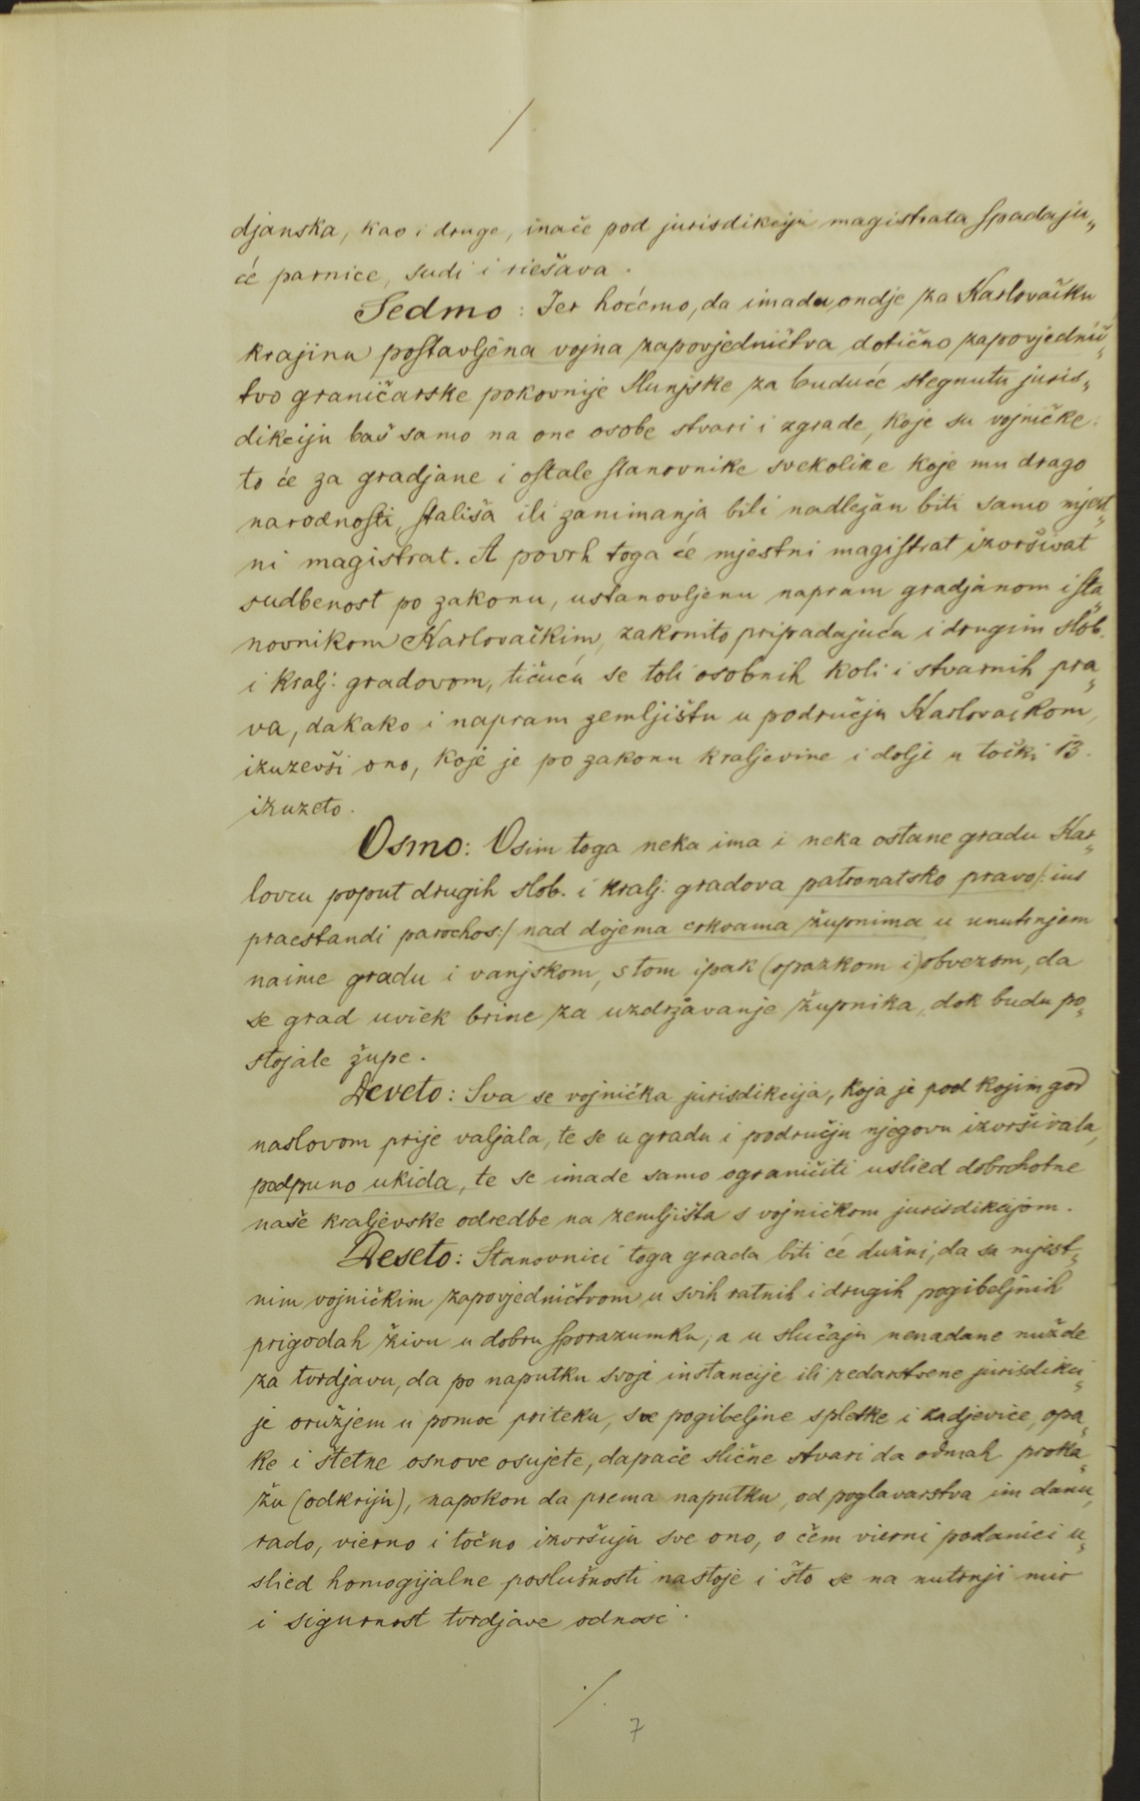 /
djanska, kao i druge, inače pod jurisdikciju magistrata spadaju„
će parnice, sudi i riešava.
Sedmo: Jer hoćemo, da imadu ondje za Karlovačku
krajinu postavljena vojna zapovjedničtva dotično zapovjednič„
tvo graničarske pokovnije Slunjske za buduće stegnutu juris„
dikciju baš samo na one osobe stvari i zgrade, koje su vojničke:
to će za gradjane i ostale stanovnike svekolike koje mu drago
narodnosti, stališa ili zanimanja bili nadležan biti samo mjest„
ni magistrat. A povrh toga će mjestni magistrat izvršivat
sudbenost po zakonu, ustanovljenu napram gradjanom i sta„
novnikom Karlovačkim, zakonito pripadajuću i drugim slob.
i kralj: gradovom, tičuću se toli osobnih koli i stvarnih pra„
va, dakako i napram zemljištu u području Karlovačkom,
izuzevši ono, koje je po zakonu kraljevine i dolje u točki 13.
izuzeto.
Osmo: Osim toga neka ima i neka ostane gradu Kar„
lovcu poput drugih slob. i kralj: gradova patronatsko pravo /:ius
praestandi parochos:/ nad dvjema crkvama župnima u unutrnjem
naime gradu i vanjskom, s tom ipak (opazkom i) obvezom, da
se grad uviek brine za uzdržavanje župnika, dok budu po„
stojale župe.
Deveto: Sva se vojnička jurisdikcija, koja je pod kojim god
naslovom prije valjala, te se u gradu i području njegovu izvršivala,
podpuno ukida, te se imade samo ograničiti uslied dobrohotne
naše kraljevske odredbe na zemljišta s vojničkom jurisdikcijom.
Deseto: Stanovnici toga grada biti će dužni, da sa mjest„
nim vojničkim zapovjedničtvom u svih ratnih i drugih pogibeljnih
prigodah živu u dobru sporazumku, a u slučaju nenadane nužde
za tvrdjavu, da po naputku svoje instancije ili redarstvene jurisdikci„
je oružjem u pomoć priteku, sve pogibeljne spletke i opa„
ke i štetne osnove osujete, dapače slične stvari da odmah proka„
žu (odkriju), napokon da prema naputku, od poglavarstva im danu,
rado, vierno i točno izvršuju sve ono, o čem vierni podanici u„
slied homogijalne poslušnosti nastoje i što se na nutrnji mir
i sigurnost tvrdjave odnosi.
./.
7